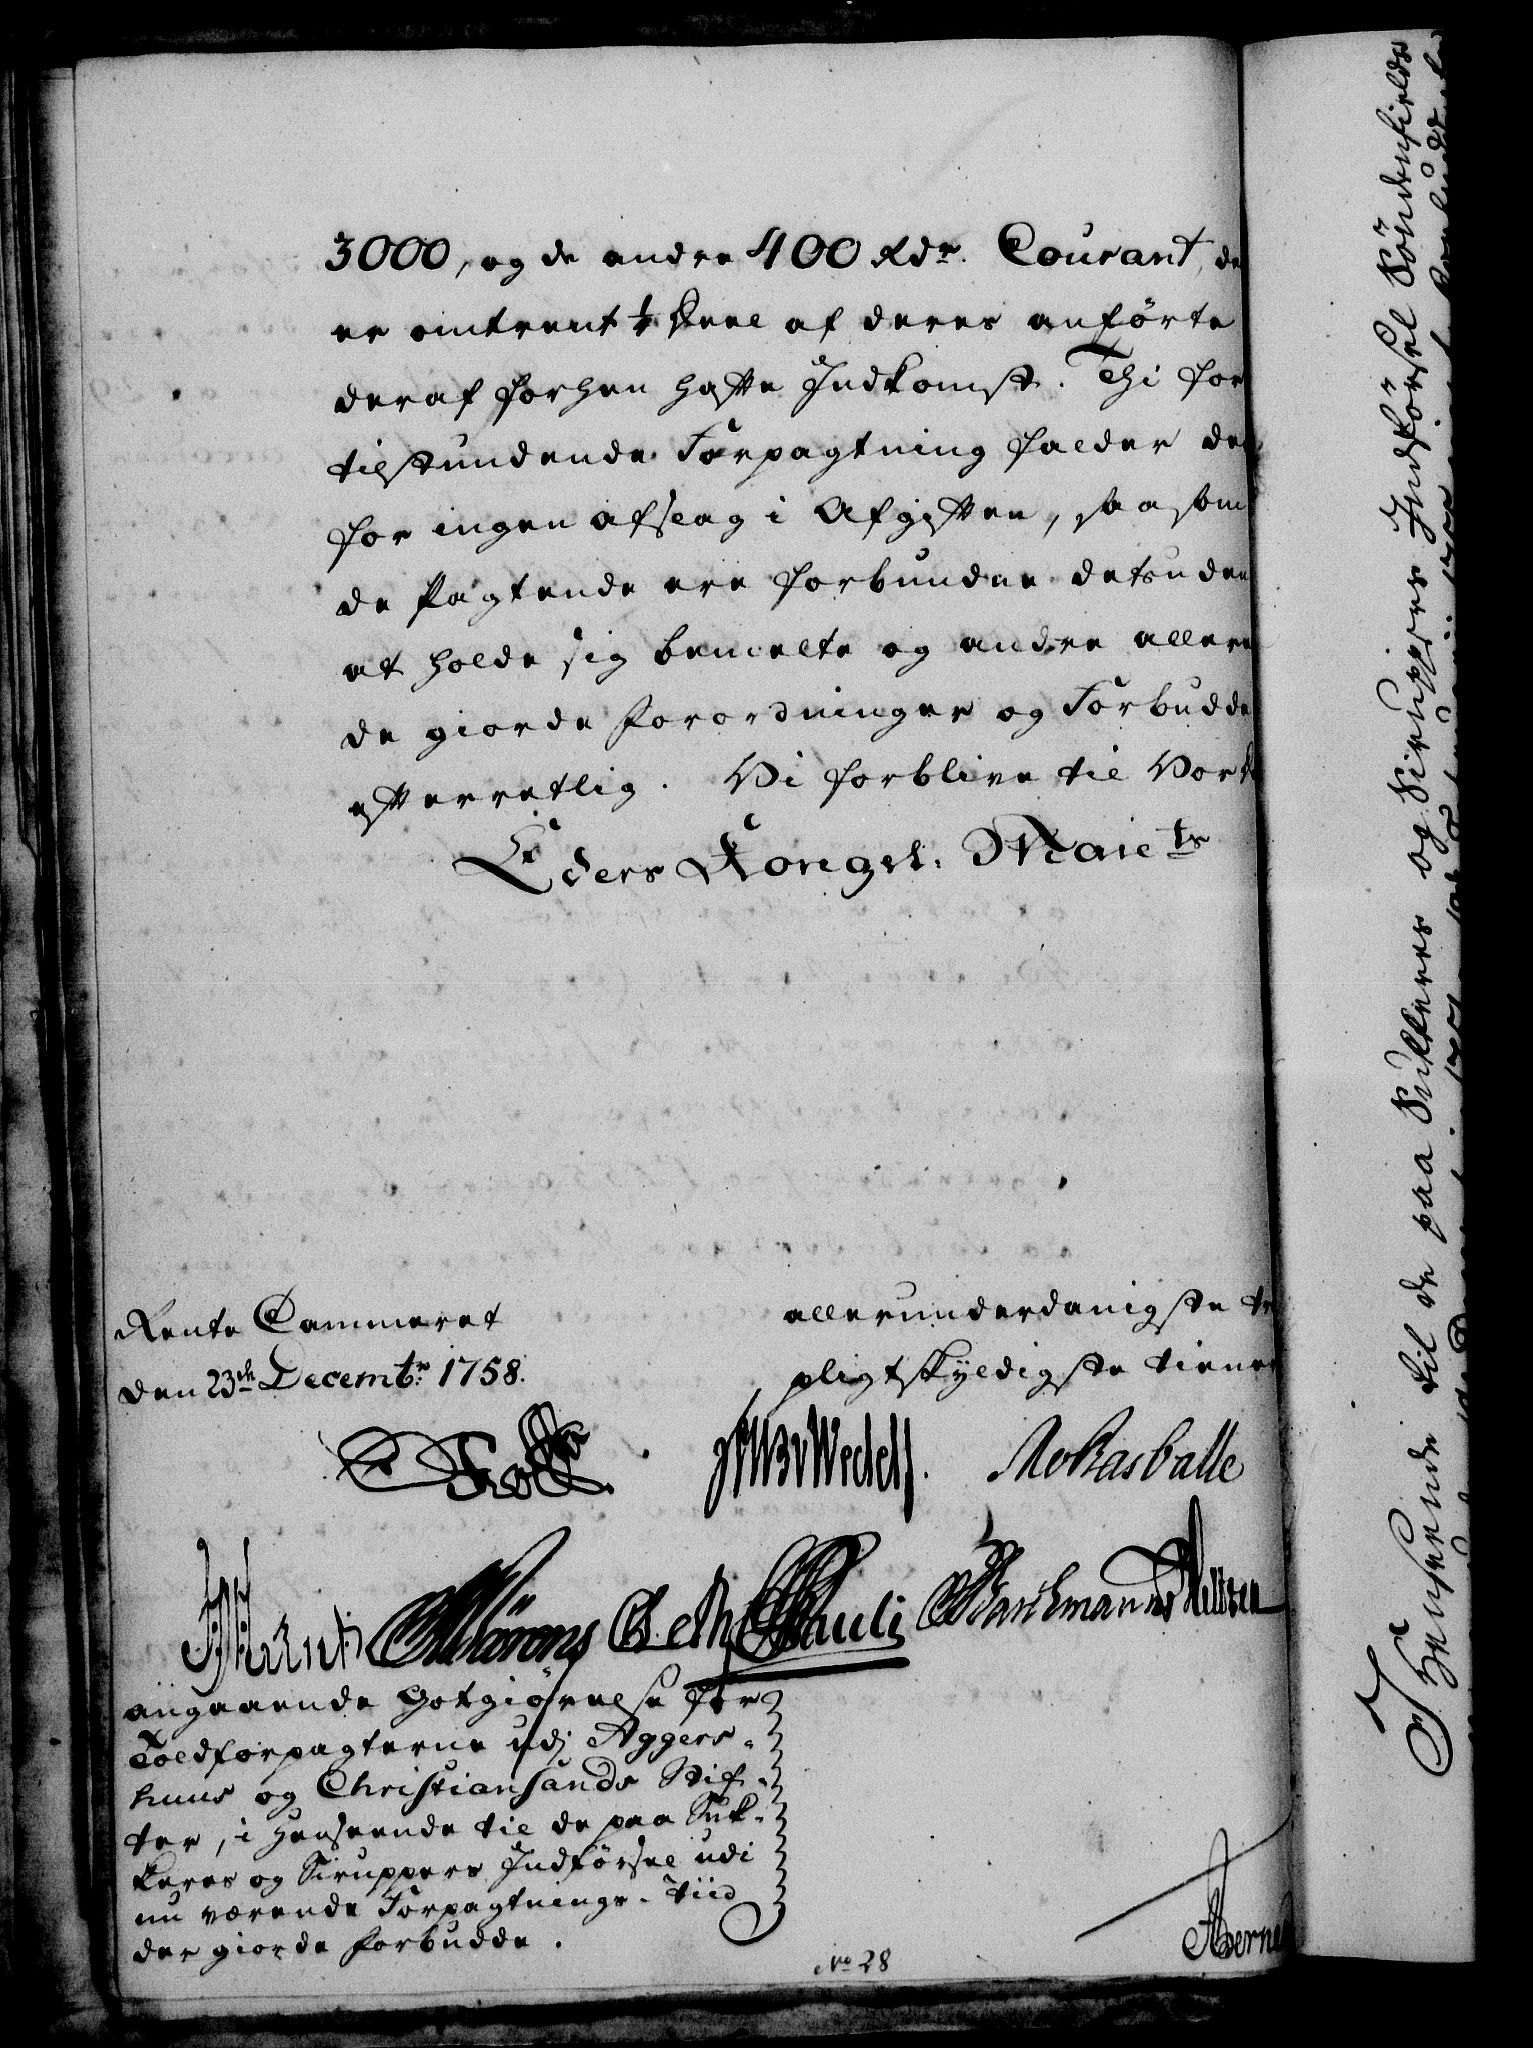 3000, og de andre 400 Rdr. Courant, de
er omtrent ⅓ Deel af deres anförte
deraf forhen hafte Indkomst. Thi for
tilstundende Forpagtning falder der
for ingen afslag i Afgiften, saasom
de Pagtende ere forbundne desuden
at holde sig bemelte og andre allere
de giorde forordninger og Forbudde
efterretlig. Vi forblive til Vor
Eders Kongel: Maiets
Rente Cammeret
den 23de Decembr: 1758.
allerunderdanigste tr
pligtskyldigste tiener
Wedell
C. Pauli
angaaende Godtgiörelse for
Toldforpagterne udj Aggers-
huus og Christiansands Stif-
ter, i henseende til de paa Suk-
keres og Siruppers Indförsel udi
nu værende Forpagtnings-Tiid
der giorde forbudde.
No 28
I henseende til de paa Sukkeres og Siruppers Indförsel Söndenfields